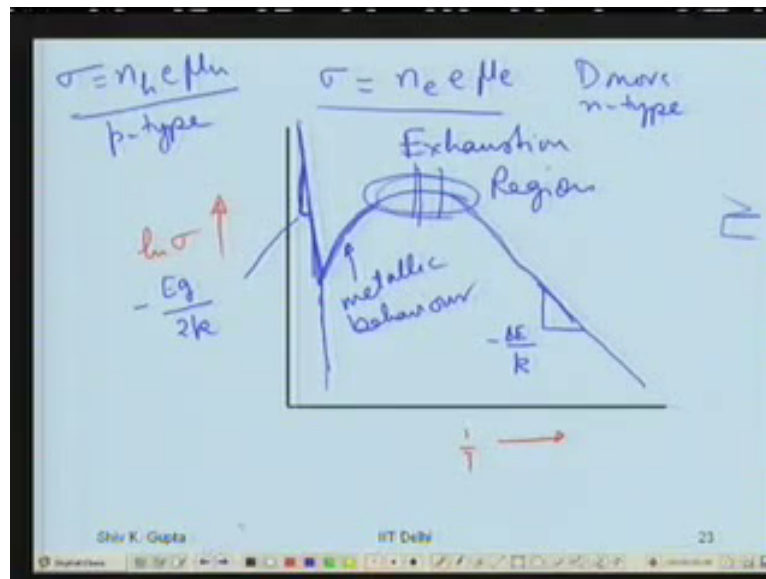 σ = n_h e μ_h
p-type
σ = n_e e μ_e
D more
n-type
Exhaustion
Region
ln σ
- Eg/2k
metallic
behaviour
- ΔE/k
1/T
Shiv K. Gupta
IIT Delhi
23